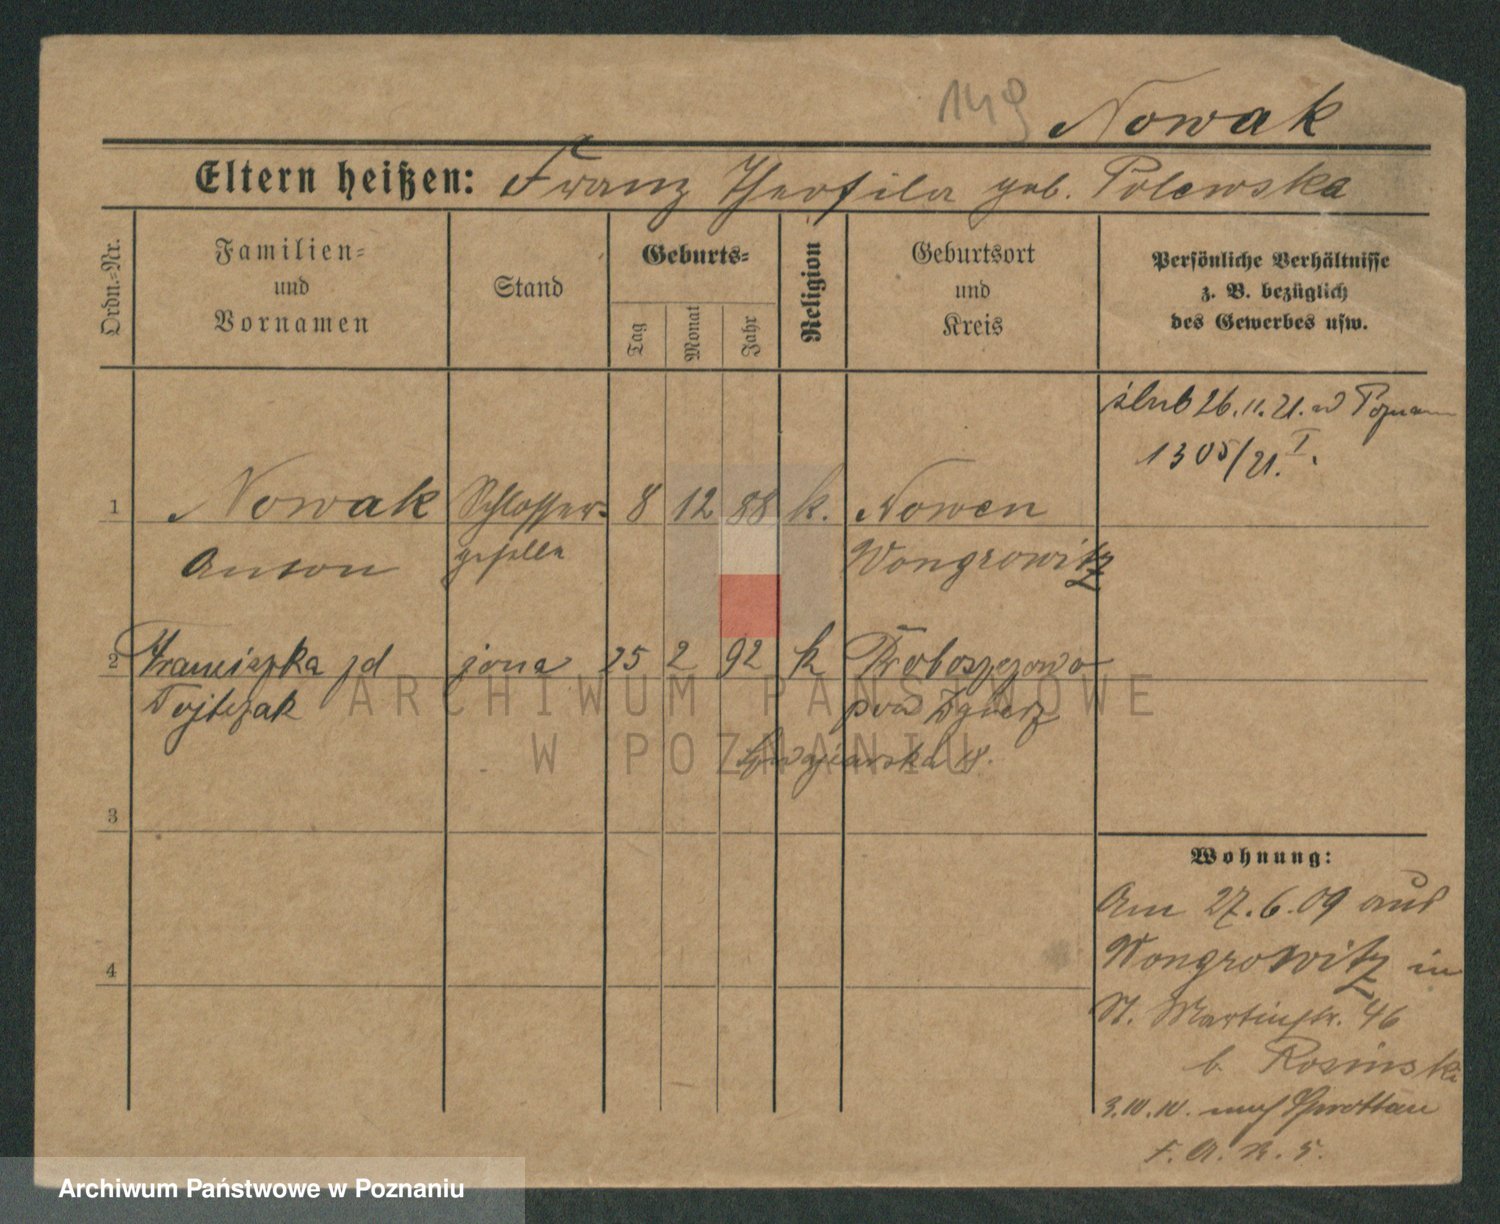 149 Nowak
Eltern heißen: Franz Theofila geb. Polewska
Ordn.-Nr.
Familien-
und
Vornamen
Stand
Geburts-
Tag
Monat
Jahr
Religion
Geburtsort
und
Kreis
Persönliche Verhältnisse
z. B. bezüglich
des Gewerbes usw.
ślub 26.11.21. w Poznaniu
1305/21 I.
1 Nowak Schlosser- 8 12 88 k. Nowen
Anton geselle Wongrowitz
2 Franciszka jd żona 25 2 92 k
Wojtczak
ARCHIWUM PAŃSTWOWE
W POZNANIU
3
4
Wohnung:
Am 27.6.09 aus
Wongrowitz in
St. Martinstr. 46
b. Rosinski
nach Sprottau
F. A. R. 5.
Archiwum Państwowe w Poznaniu